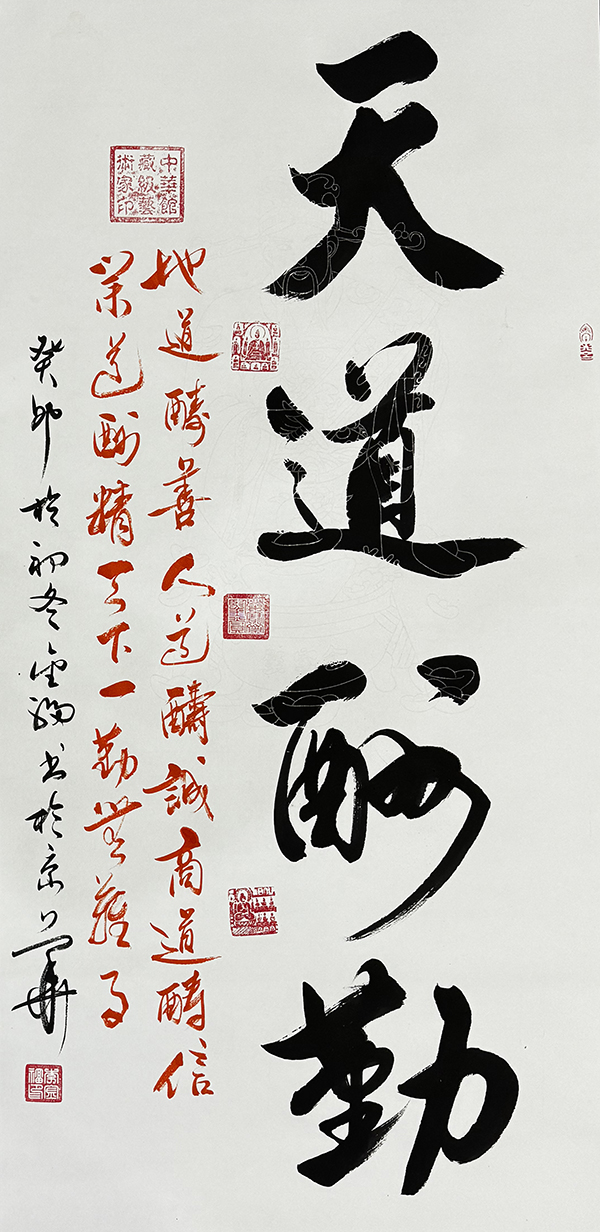 天道酬勤
地道酬善人道酬誠商道酬信
業道酬精天下一勤無難事
癸卯於初冬金福书於京華
中華館藏級藝術家印